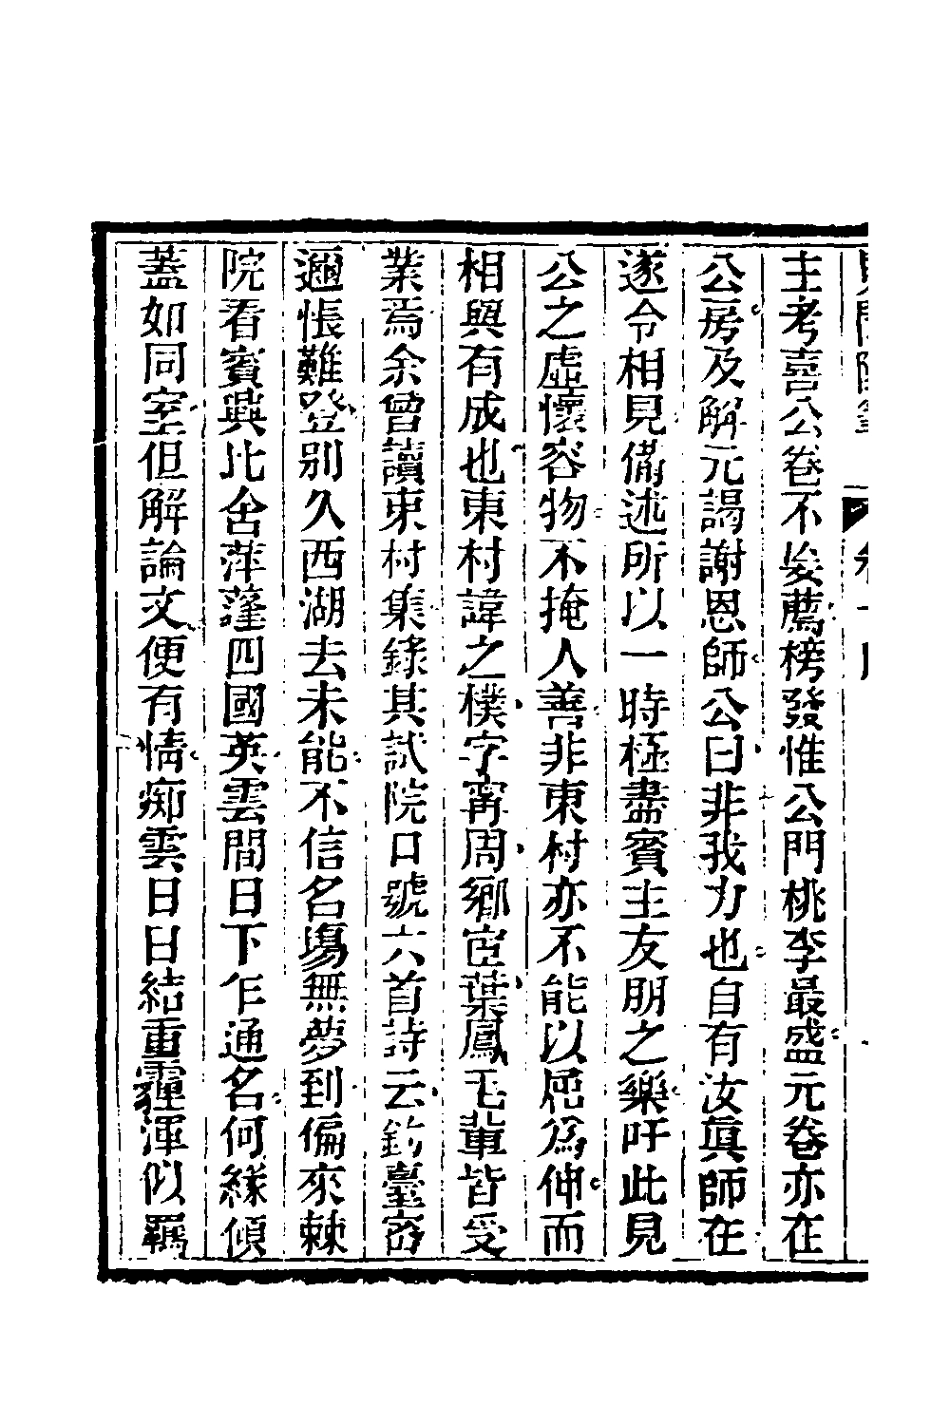 主考喜公卷不矣薦榜發惟公門桃李最盛元卷亦在
公房及解元謁謝恩師公曰非我力也自有汝眞師在
遂令相見備述所以一時極盡賓主友朋之樂吁此見
公之虛懷容物不掩人善非東村亦不能以屈爲伸而
相與有成也東村諱之樸字甯周鄉宦葉鳳毛輩皆受
業焉余曾讀東村集錄其試院口號六首詩云釣臺密
邇悵難登別久西湖去未能不信名場無夢到偏來棘
院看賓興比舍萍蓬四國英雲間日下乍通名何緣傾
蓋如同室但解論文便有情痴雲日日結重霾渾似羈